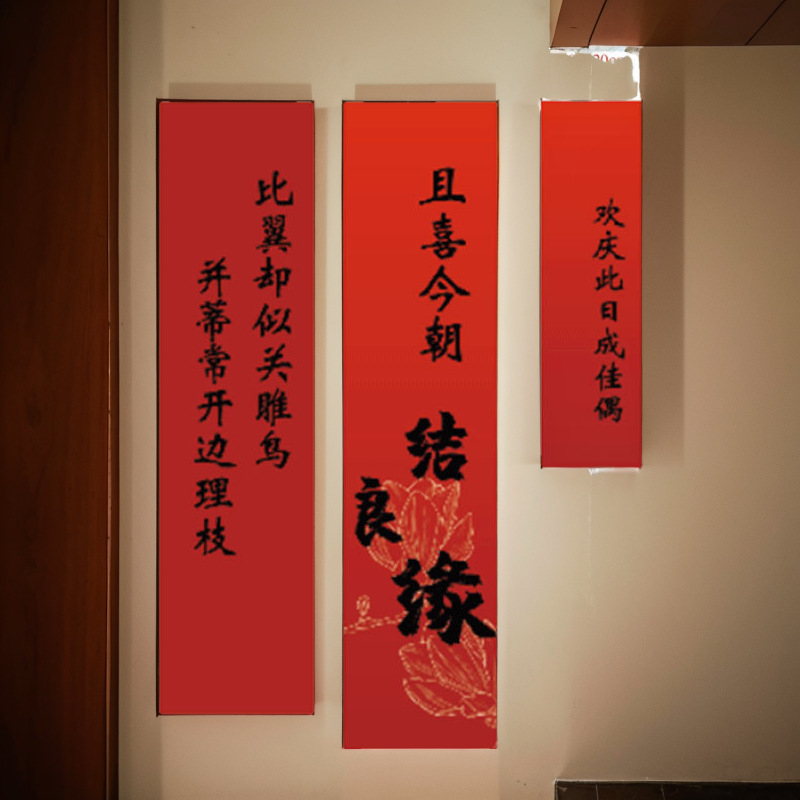 欢庆此日成佳偶
且喜今朝
结
良
缘
比翼却似关雎鸟
并蒂常开边理枝